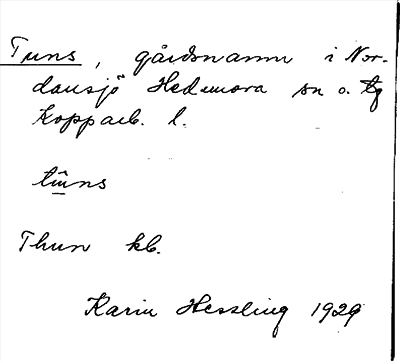 Tuns, gårdsnamn i Nor-
dansjö Hedemora sn o. tg
Kopparb. l.
tɯ̂ns
Thun kb.
Karin Hessling 1929